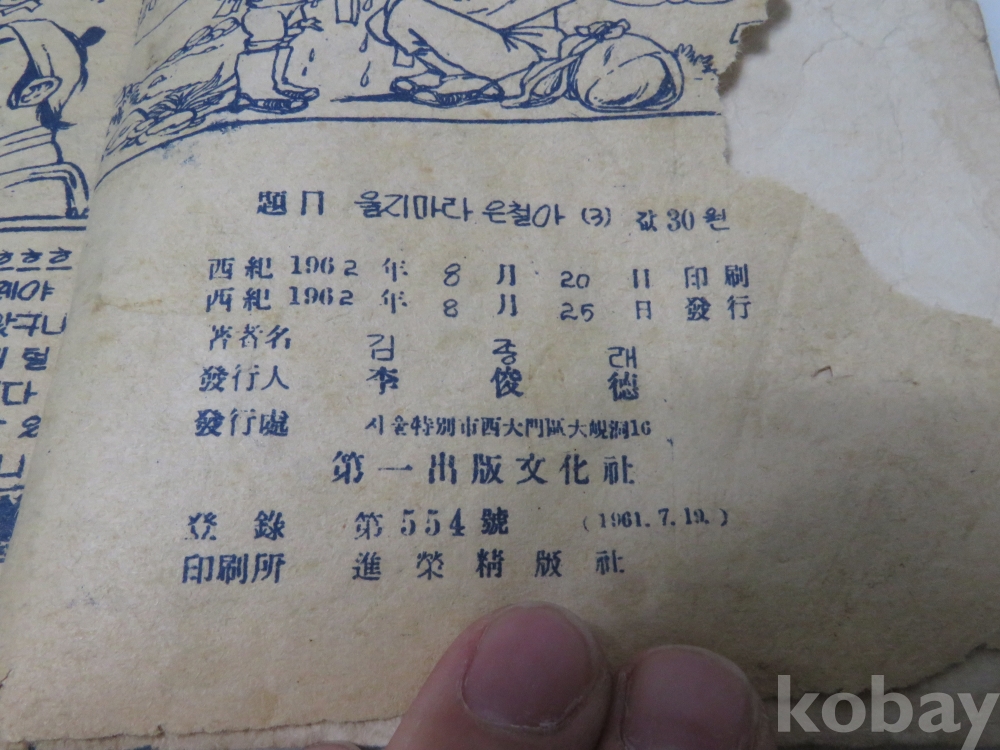 題目 울지마라 은철아 (3) 값 30 원
西紀 1962 年 8 月 20 日 印刷
西紀 1962 年 8 月 25 日 發行
著者名 김 종 래
發行人 李 俊 德
發行處 서울特別市西大門區大峴洞16
第一出版文化社
登錄 第554號 (1961.7.19.)
印刷所 進榮精版社
흐흐흐
kobay